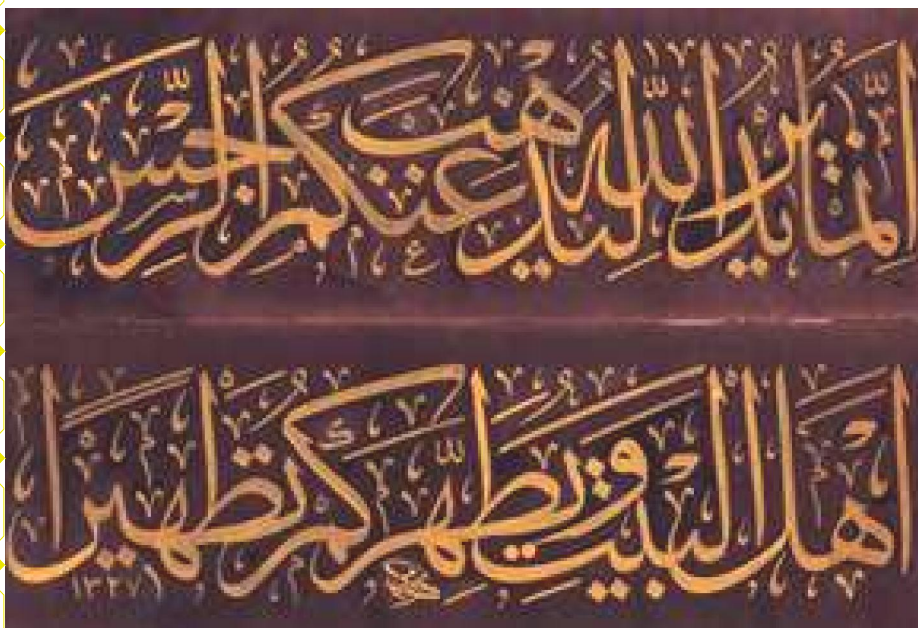 إنما يريد الله ليذهب عنكم الرجس
أهل البيت ويطهركم تطهيرا
١٣٢٧